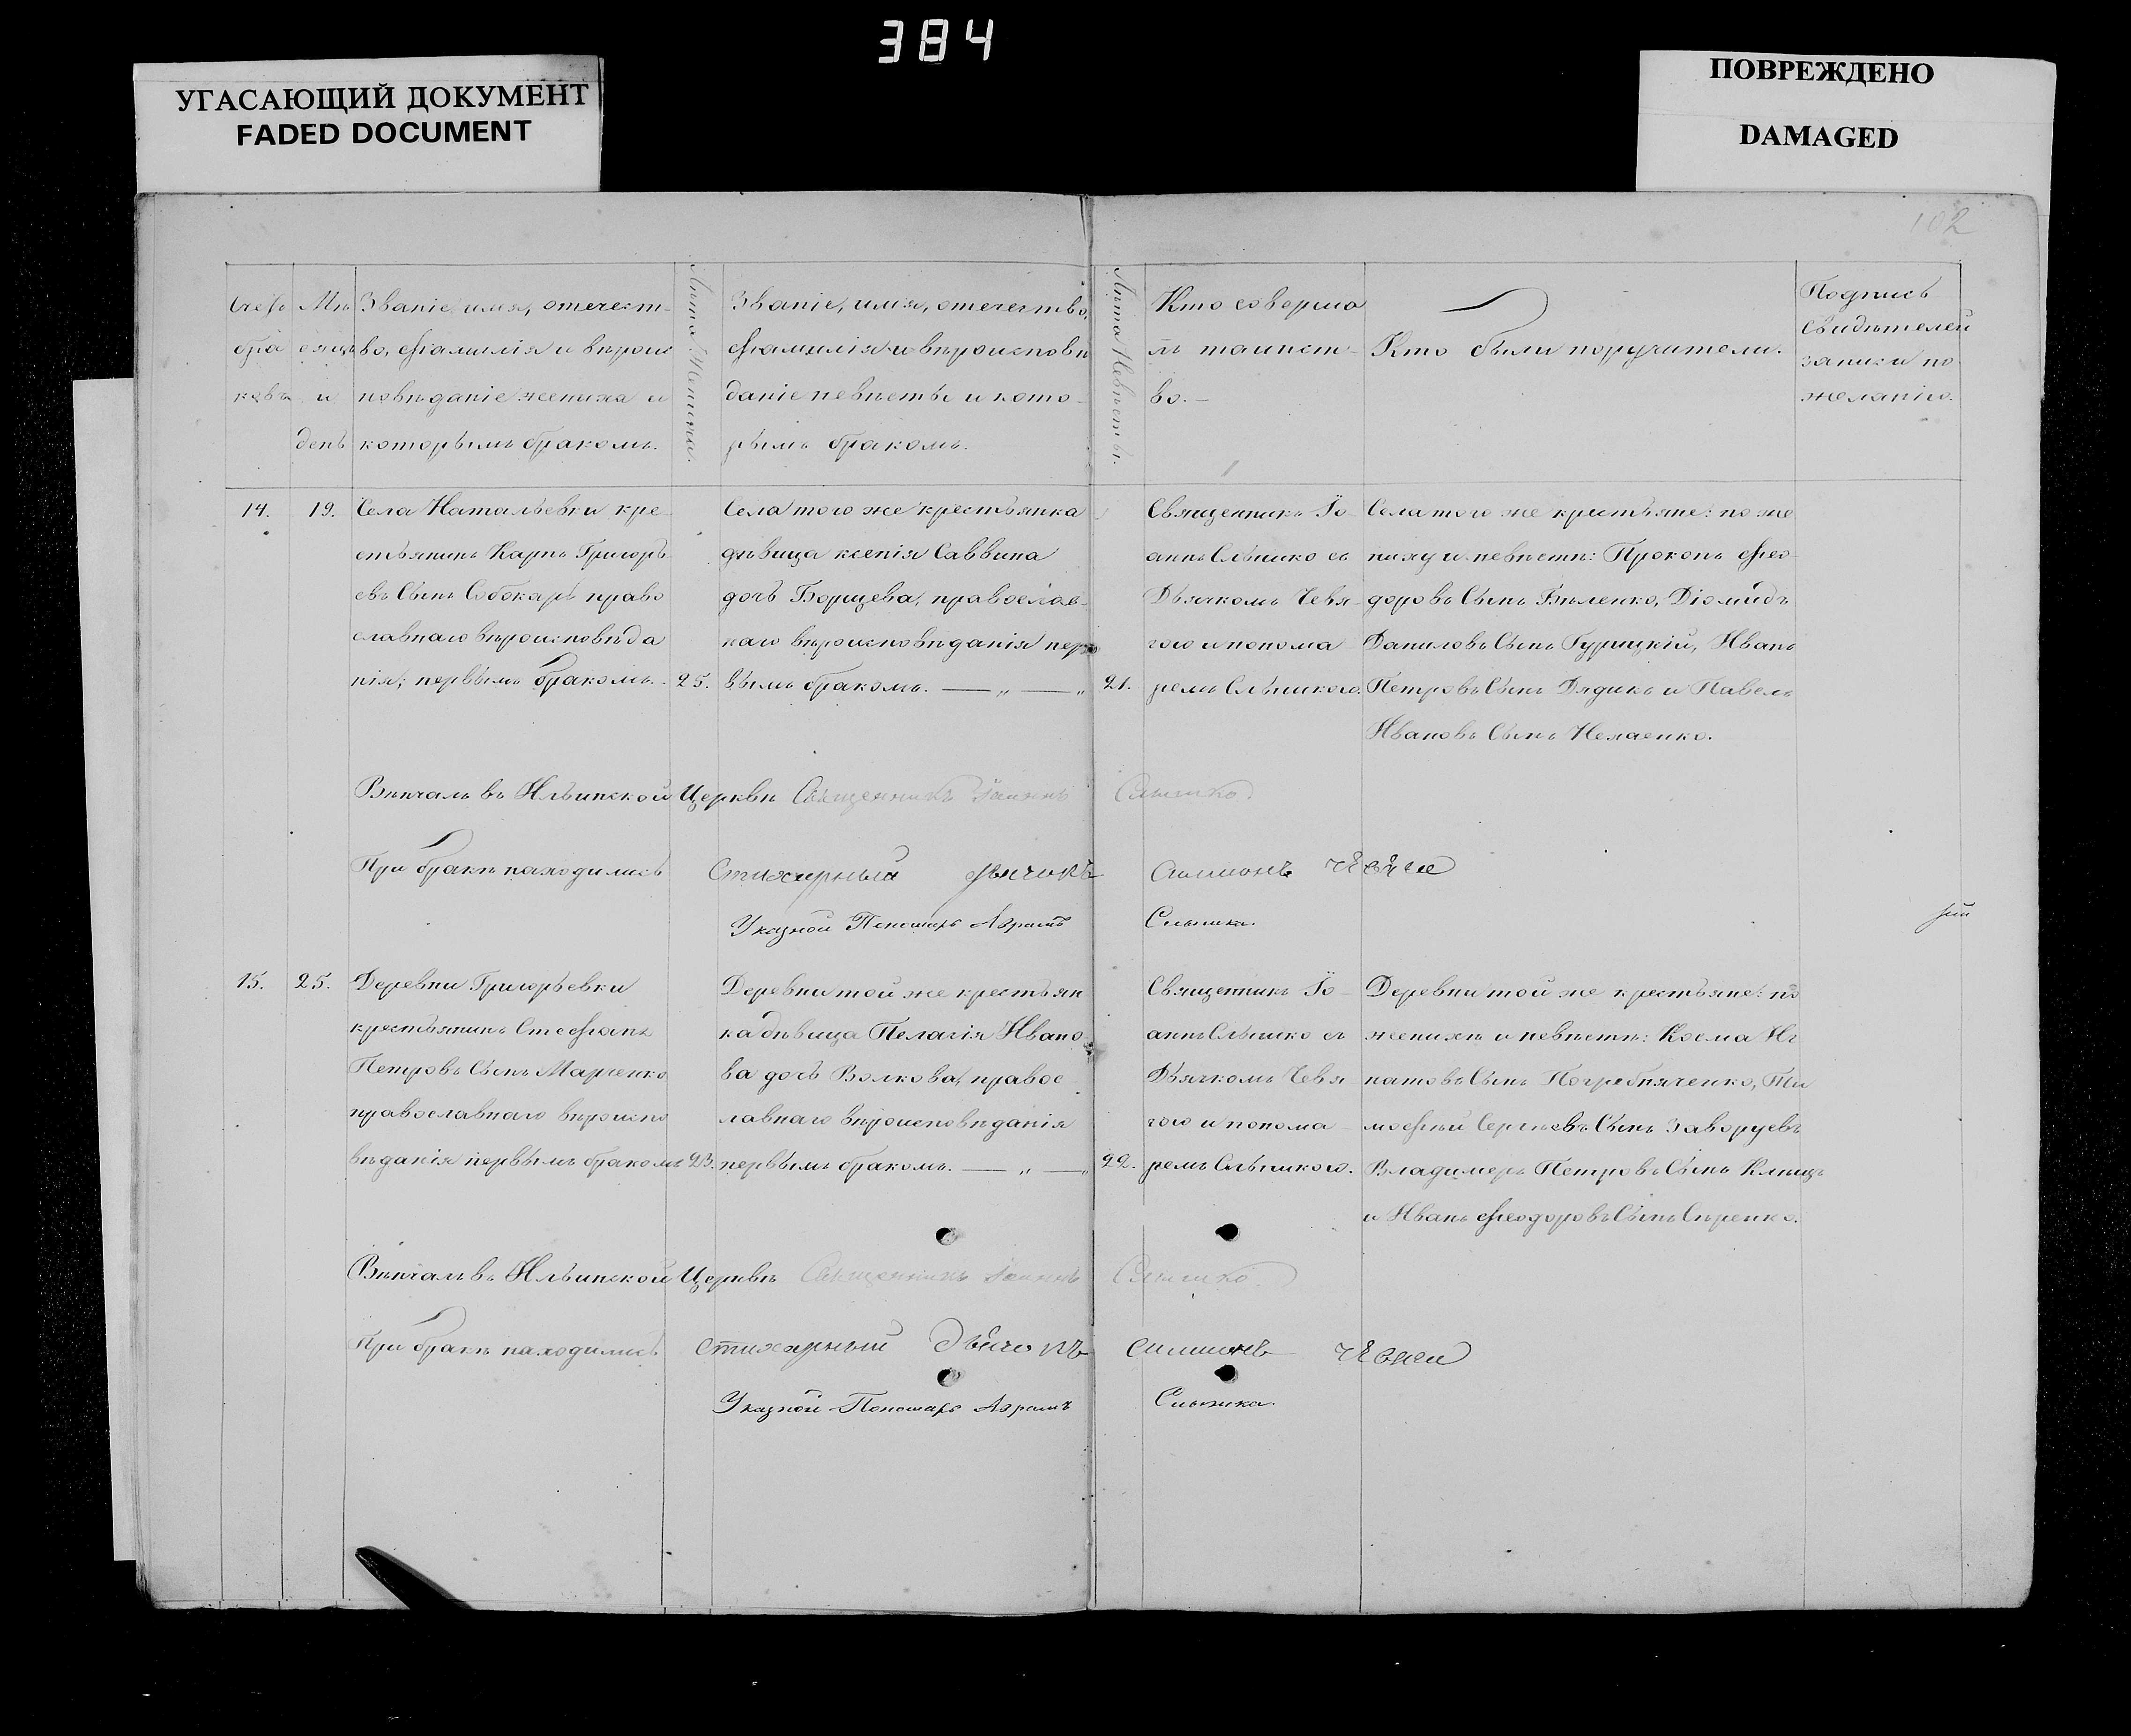 384
УГАСАЮЩИЙ ДОКУМЕНТ
FADED DOCUMENT
ПОВРЕЖДЕНО
DAMAGED
102
Счетъ
бра
ковъ
Мѣ
сяцъ
и
день
Званіе, имя, отечест-
во, фамилія и вѣроис
повѣданіе жениха и
которымъ бракомъ.
Лѣта Жениха.
Званіе, имя, отечество,
фамилія и вѣроисповѣ
даніе невѣсты и кото-
рымъ бракомъ.
Лѣта Невѣсты.
Кто соверша
лъ таинст-
во.—
Кто были поручители.
Подпись
свидѣтелей
записи по
желанію.
14.
19.
Села Натальевки кре-
стьянинъ Карпъ Григорь-
евъ Сынъ Собокарь право
славнаго вѣроисповѣда
нія; первымъ бракомъ.-
25.
Села того же крестьянка
дѣвица ксенія Саввина
дочь Борщева, православ-
наго вѣроисповѣданія пер
вымъ бракомъ. — „ — „
21.
Священникъ Іо-
аннъ Слѣпико съ
Дьячкомъ Чевя-
гого и понома-
ремъ
Села того же крестьяне: по же
ниху и невѣстѣ: Прокопъ Фео-
доровъ Сынъ Бѣленко, Діомидъ
Даниловъ Сынъ Гурицкій, Иванъ
Петровъ Сынъ Дядикъ и Павелъ
Ивановъ Сынъ
Вѣнчалъ въ Ильинской Церквѣ Священникъ Іоаннъ
При бракѣ находились Стихарный дьячокъ Симионъ
Указной Пономарь Аврамъ
15.
25.
Деревни Григорьевки
крестьянинъ Стефанъ
Петровъ Сынъ Марченко
православнаго вѣроиспо
вѣданія первымъ бракомъ
23.
Деревни той же крестьян
ка дѣвица Пелагія Ивано
ва дочь Волкова, правос-
лавнаго вѣроисповѣданія
первымъ бракомъ. — „ — „
22.
Священникъ Іо-
аннъ Слѣпико съ
Дьячкомъ Чевя
гого и понома-
ремъ
Деревни той же крестьяне: по
жениху и невѣстѣ: Косма Иг
натовъ Сынъ Погребняченко, Ти
мофей Сергѣевъ Сынъ Заворуевъ
Владимеръ Петровъ Сынъ Клищъ
и Иванъ Феодоровъ Сынъ Сѣренко.
Вѣнчалъ въ Ильинской Церквѣ Священникъ Іоаннъ
При бракѣ находились стихарный дьячокъ симионъ
Указной Пономарь Аврамъ